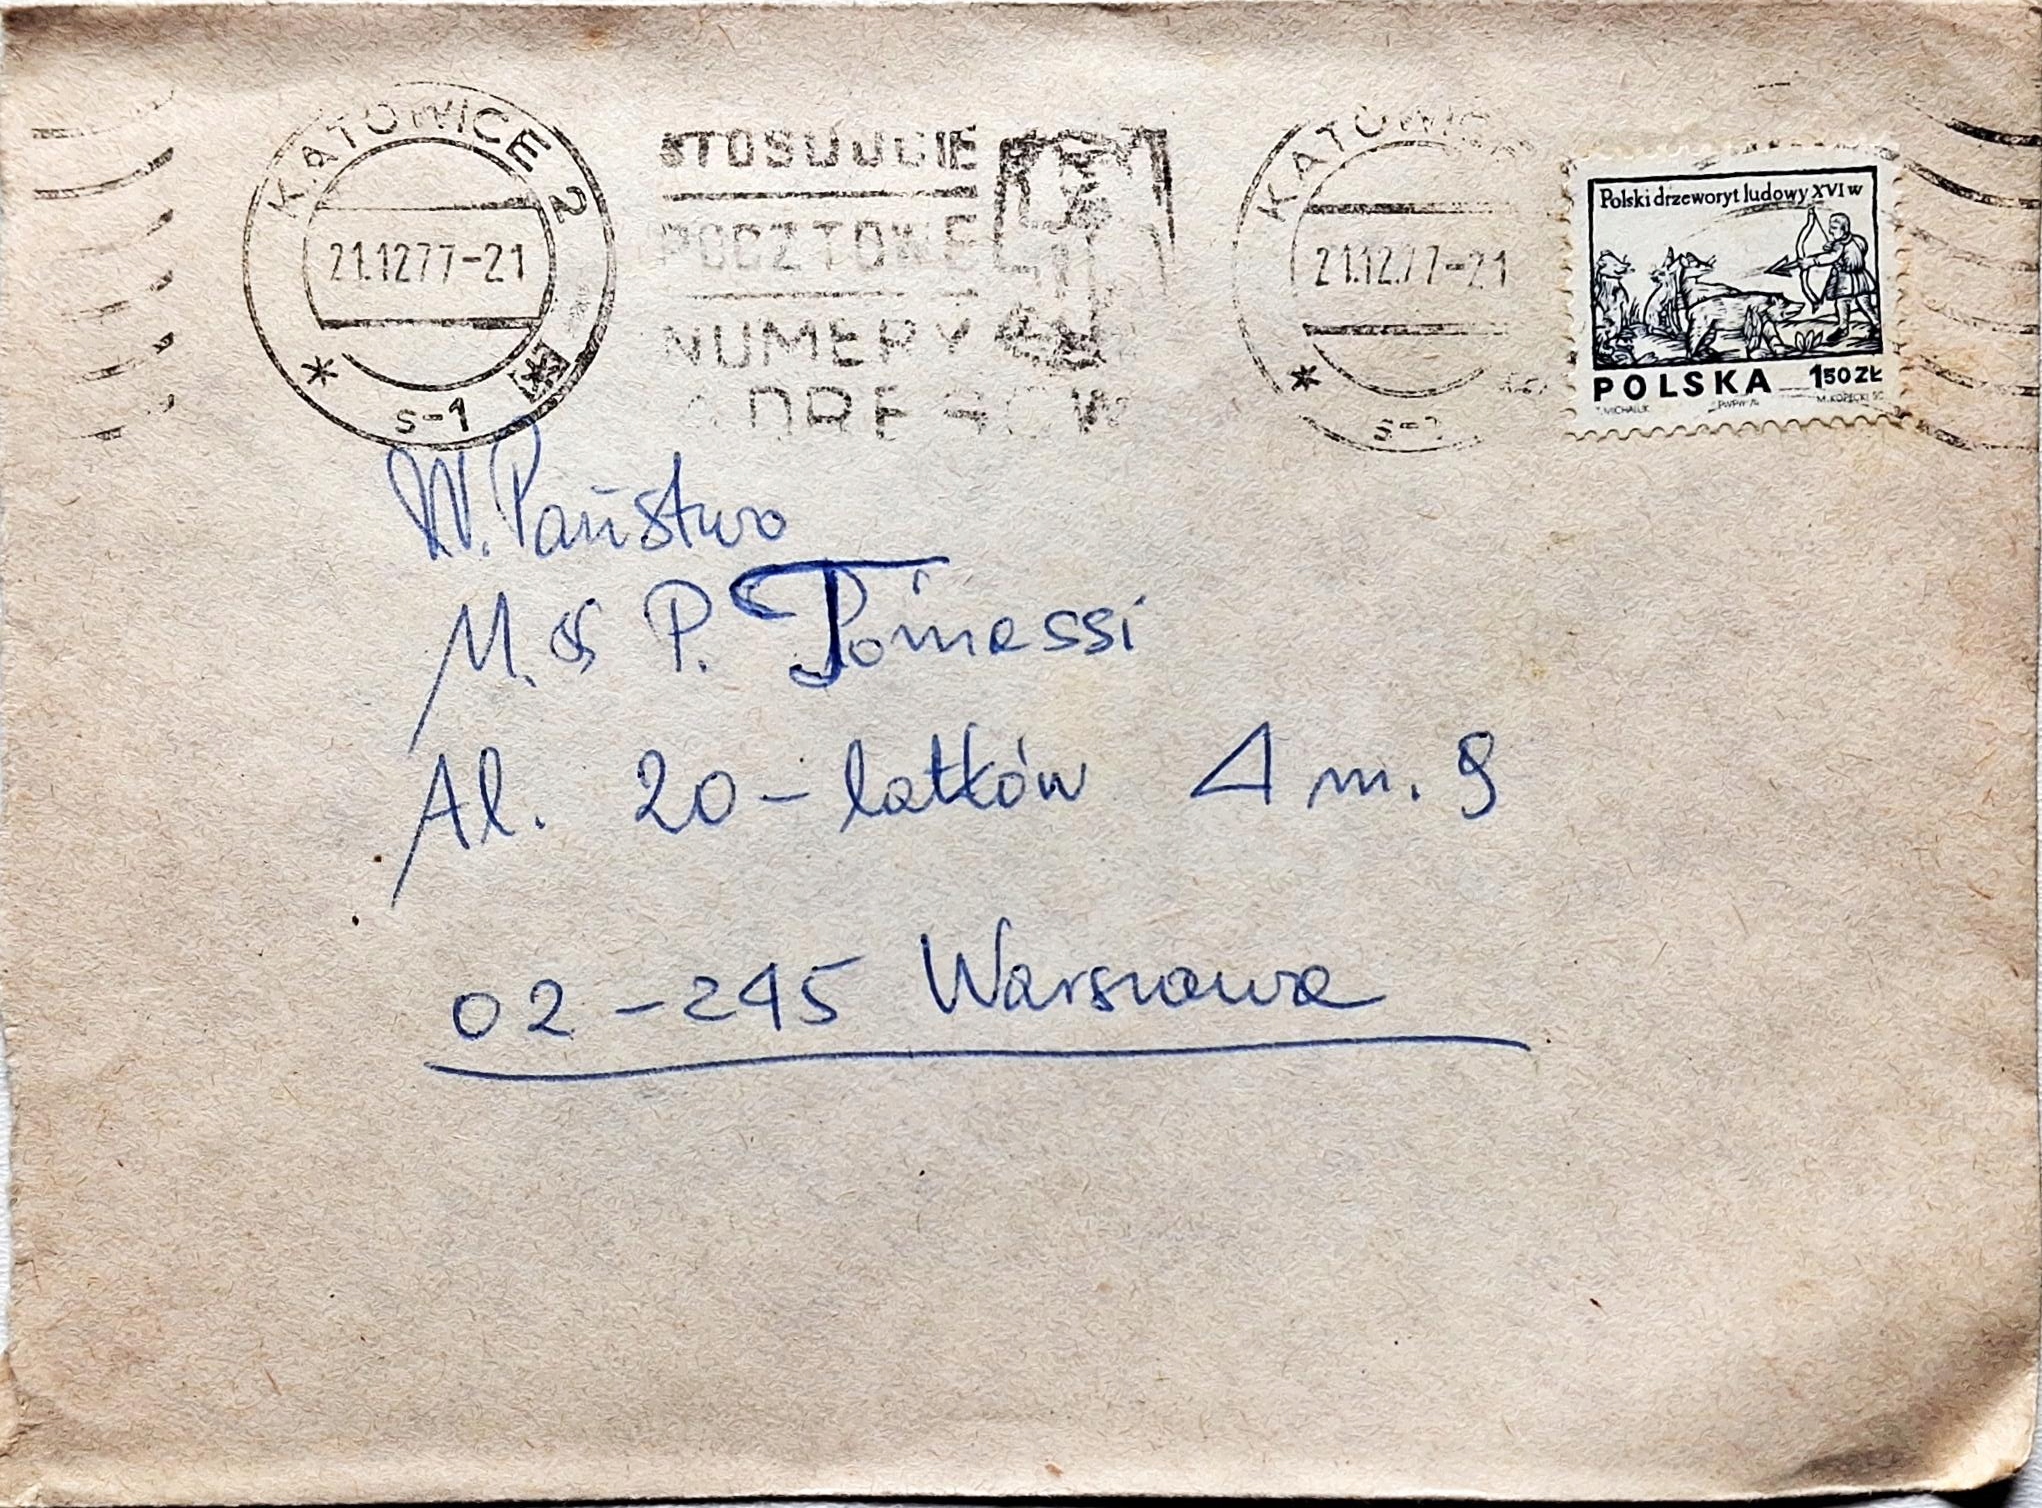 KATOWICE 2
21.12.77-21
s-1
STOSUJCIE
POCZTOWE
NUMERY
ADRESOWE
KATOWICE
21.12.77-21
s-1
Polski drzeworyt ludowy XVI w
POLSKA 150 ZŁ
T. MICHALUK PWPW 74 M. KOPECKI SC.
W. Państwo
M. & P. Tomassi
Al. 20-latków 4 m. 9
02-245 Warszawa